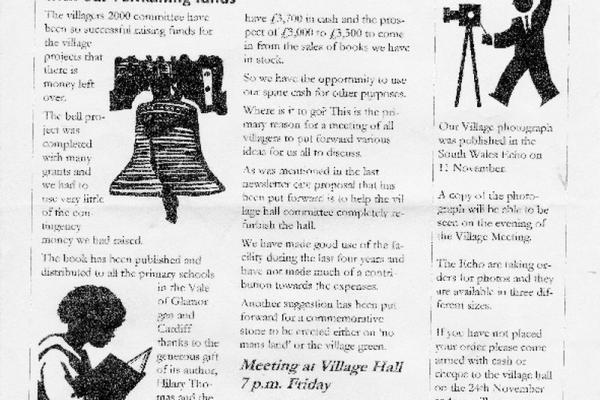 with our remaining funds
The villagers 2000 committee have
been so successful raising funds for
the village
projects that
there is
money left
over.
The bell pro-
ject was
completed
with many
grants and
we had to
use very little
of the con-
tingency
money we had raised.
The book has been published and
distributed to all the primary schools
in the Vale
of Glamor
gan and
Cardiff
thanks to the
generous gift
of its author,
Hilary Tho-
mas and the
have £3,700 in cash and the pros-
pect of £3,000 to £3,500 to come
in from the sales of books we have
in stock.
So we have the opportunity to use
our spare cash for other purposes.
Where is it to go? This is the pri-
mary reason for a meeting of all
villagers to put forward various
ideas for us all to discuss.
As was mentioned in the last
newsletter one proposal that has
been put forward is to help the vil
lage hall committee completely re-
furbish the hall.
We have made good use of the fa-
cility during the last four years and
have not made much of a contri-
bution towards the expenses.
Another suggestion has been put
forward for a commemorative
stone to be erected either on 'no
mans land' or the village green.
Meeting at Village Hall
7 p.m. Friday
Our Village photograph
was published in the
South Wales Echo on
November
A copy of the photo-
graph will be able to be
seen on the evening of
the Village Meeting.
The Echo are taking or-
ders for photos and they
are available in three dif-
ferent sizes.
If you have not placed
your order please come
armed with cash or
cheque to the village hall
on the 24th November